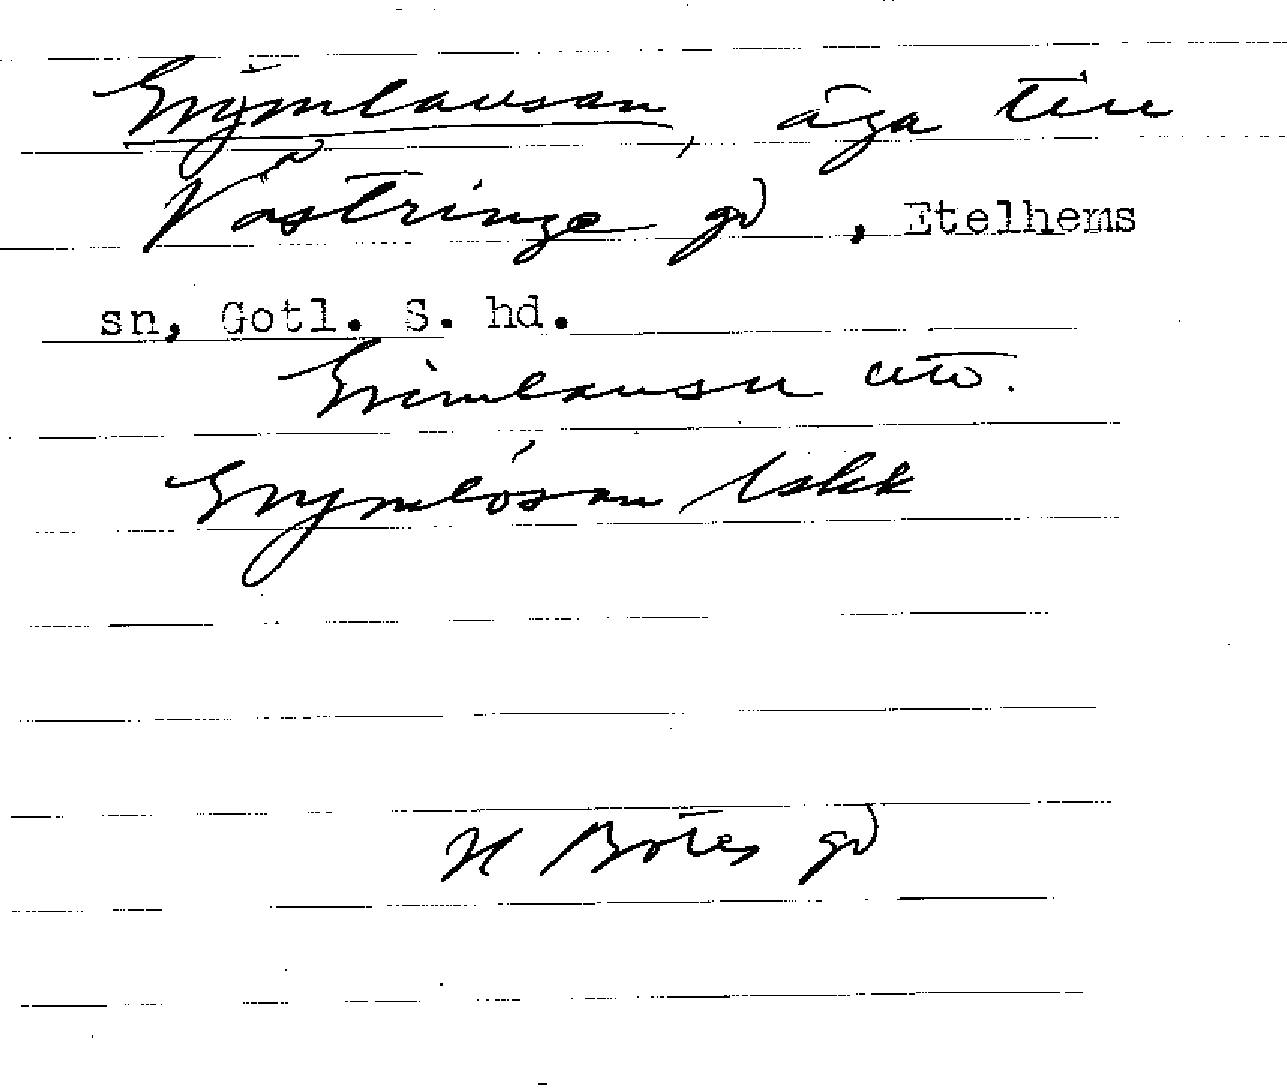 Grymlausan, äga till
Västringe gd, Etelhems
sn, Gotl. S. hd.
Grimlausu utt.
Grymlósan lskk
Botes gd